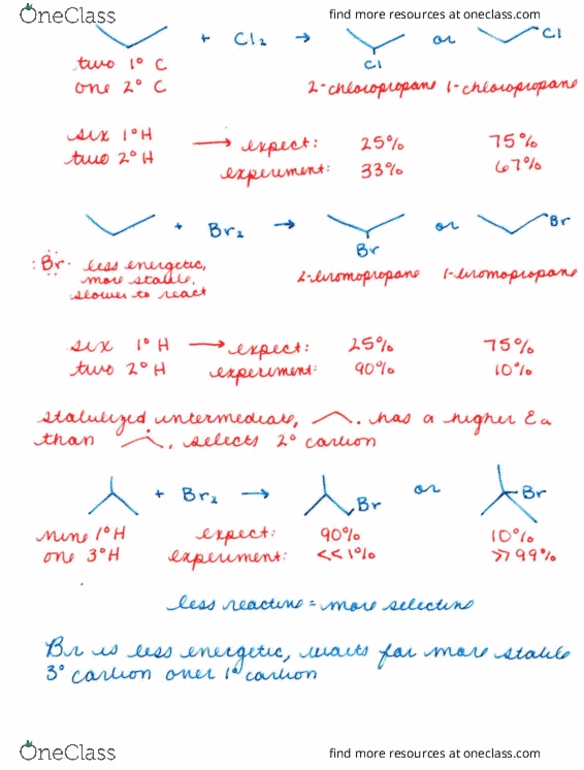 OneClass find more resources at oneclass.com
+ Cl₂ → Cl or Cl
two 1° C
one 2° C 2-chloropropane 1-chloropropane
six 1° H → expect: 25% 75%
two 2° H experiment: 33% 67%
+ Br₂ → Br or Br
:Br· less energetic, more stable, slower to react
2-bromopropane 1-bromopropane
six 1° H → expect: 25% 75%
two 2° H experiment: 90% 10%
stabilized intermediate, . has a higher Ea
than . , selects 2° carbon
+ Br₂ → Br or Br
nine 1° H expect: 90% 10%
one 3° H experiment: <<1% >>99%
less reactive = more selective
Br is less energetic, waits for more stable
3° carbon over 1° carbon
OneClass find more resources at oneclass.com